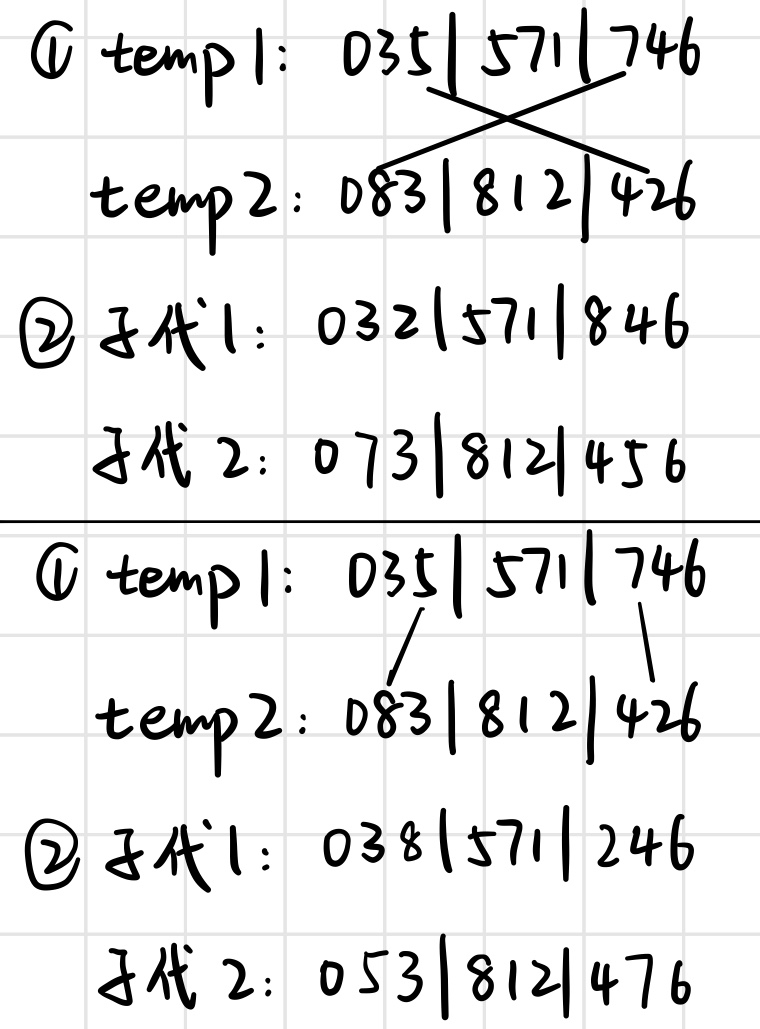 ① temp1: 035|571|746
temp2: 083|812|426
② 子代1: 032|571|846
子代2: 073|812|456
① temp1: 035|571|746
temp2: 083|812|426
② 子代1: 038|571|246
子代2: 053|812|476